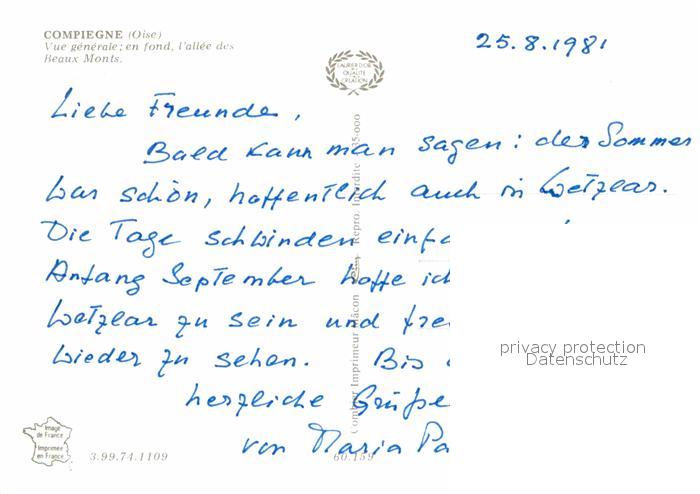 COMPIEGNE (Oise)
Vue générale; en fond, l'allée des
Beaux Monts.
25.8.1981
LAURIER D'OR
DE LA
QUALITÉ
DE LA
CRÉATION
Liebe Freunde,
Bald kann man sagen: der Sommer
war schön, hoffentlich auch in Wetzlar.
Die Tage schwinden einfa
Anfang September hoffe ich
Wetzlar zu sein und fre
wieder zu sehen. Bis
herzliche Grüße
von Maria Pa
Combier Imprimeur Mâcon
Repro. Interdite
privacy protection
Datenschutz
Image
de France
Imprimée
en France
3.99.74.1109
60.159